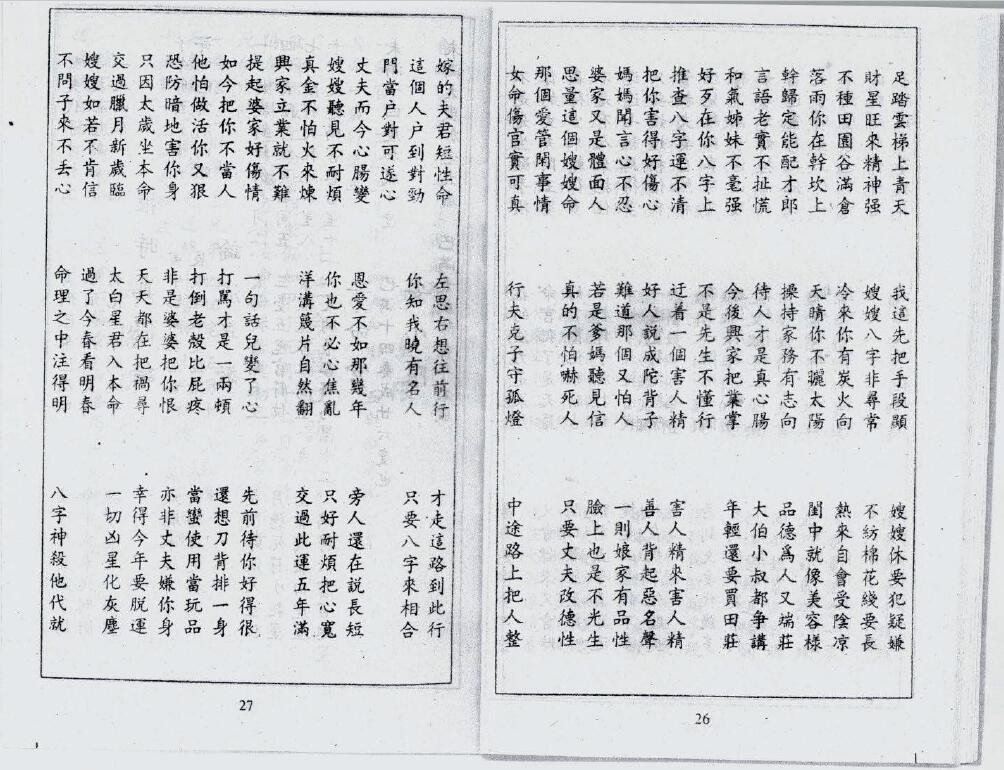 足踏雲梯上青天 我這先把手段顯 嫂嫂休要犯疑嫌
財星旺來精神强 嫂嫂八字非尋常 不紡棉花綫要長
不種田園谷滿倉 冷來你有炭火向 熱來自會受陰凉
落雨你在幹坎上 天晴你不曬太陽 閨中就像美容樣
幹歸定能配才郎 操持家務有志向 品德爲人又端莊
言語老實不扯慌 待人才是真心腸 大伯小叔都争講
和氣姊妹不毫强 今後興家把業掌 年輕還要買田莊
好歹在你八字上 不是先生不懂行
推查八字運不清 迂着一個害人精 害人精來害人精
把你害得好傷心 好人説成陀背子 善人背起惡名聲
媽媽聞言心不忍 難道那個又怕人 一則娘家有品性
婆家又是體面人 若是爹媽聽見信 臉上也是不光生
思量這個嫂嫂命 真的不怕嚇死人 只要丈夫改德性
那個愛管閑事情
女命傷官實可真 行夫克子守孤燈 中途路上把人整
26
嫁的夫君短性命 左思右想往前行 才走這路到此行
這個人户到對勁 你知我曉有名人 只要八字來相合
門當户對可遂心
丈夫而今心腸變 恩愛不如那幾年 旁人還在説長短
嫂嫂聽見不耐煩 你也不必心焦亂 只好耐煩把心寬
真金不怕火來煉 洋溝篾片自然翻 交過此運五年滿
興家立業就不難
提起婆家好傷情 一句話兒變了心 先前待你好得很
如今把你不當人 打罵才是一兩頓 還想刀背排一身
他怕做活你又狠 打倒老殼比屁疼 當蠻使用當玩品
恐防暗地害你身 非是婆婆把你恨 亦非丈夫嫌你身
只因太歲坐本命 天天都在把禍尋 幸得今年要脱運
交過臘月新歲臨 太白星君入本命 一切凶星化灰塵
嫂嫂如若不肯信 過了今春看明春
不問子來不丢心 命理之中注得明 八字神殺他代就
27